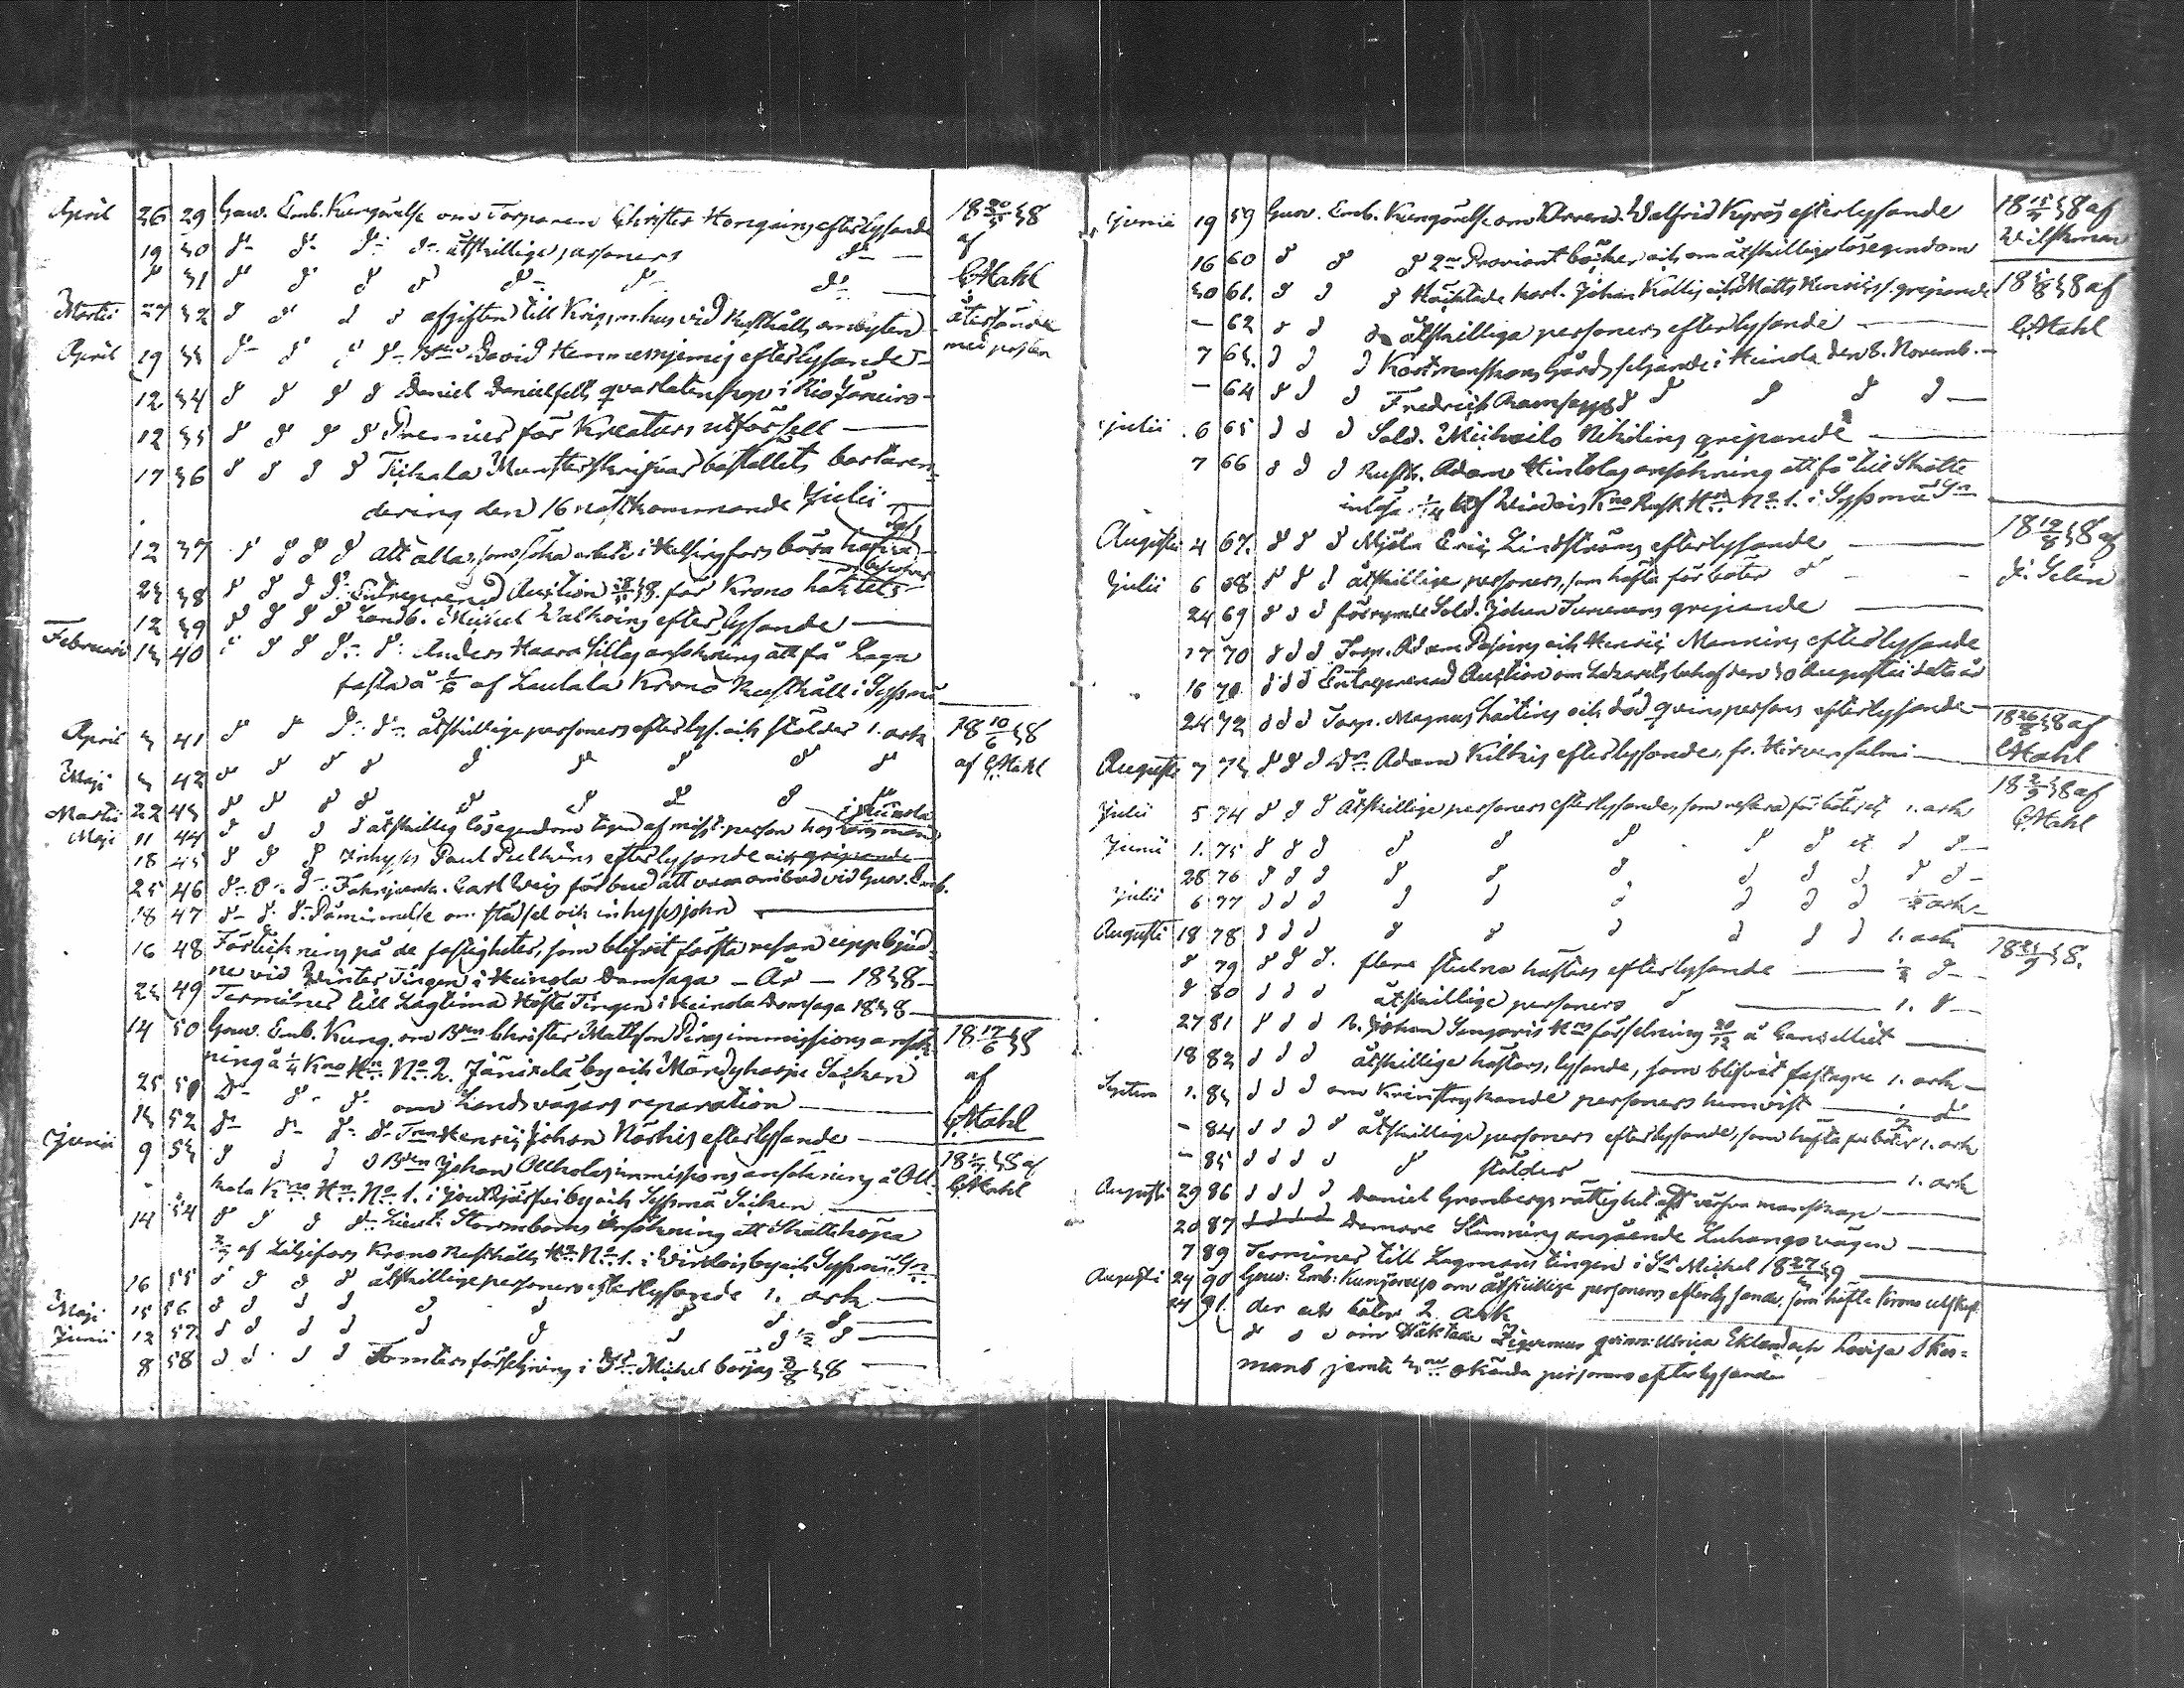 April 26 29 Guv. Emb. Kungörelse om Torparen Christer Hongains efterlysande 18 20/5 38
19 30 d:o d:o d:o d:o åtskillige personers d:o — af
d 31 d d d d d:o d:o d:o — G. Stahl
Martii 27 32 d d d d afgiften till Krigsm. hus vid Rusthålls ombyten återsände
April 19 33 d:o d d d:o David Hemmers efterlysande — med posten
12 34 d d d d Daniel Danielsells qvarlatenskap i Rio Janeiro —
12 35 d d d d Premier för Kreaturs utförsell —
17 36 d d d d Tiihala Munsterskrifvar bostellets bortaren-
dering den 16 nästkommande Julii —
12 37 d d d d att alla, som söka arbete i Helsingfors böra hafva
23 38 d d d d:o Entreprenad Auction för Krono häktets
12 39 d d d d Landb. Michel Walkoins efterlysande —
Februari 13 40 d d d d:o d: Anders Haara Sillas ansökning att få Laga
fasta å 1/6 af Lautala Krono Rusthåll i Sysmä
April 3 41 d d d:o d:o åtskillige personers efterlys. och stölder 1. ark 18 10/6 38
Maji 3 42 d d d d d d d d d af G. Stahl
Martii 22 43 d d d d d d d d d
Maji 11 44 d d d d åtskillig lösegendom tagen af misst. person hos i Heinola
18 45 d d d Inhyses Paul Pulkins efterlysande och gripande
25 46 d:o d:o d:o Carl Weis förbud att vara ombud vid Guv. Emb.
18 47 d:o d: d: Påminnelse om städsel och inhysesjohn —
16 48 Förtekning på de fastigheter, som blifvit första resan uppbjud-
ne vid Winter Tingen i Heinola Domsaga — År — 1838 —
23 49 Terminer till Lagtima Höste Tingen i Heinola Domsaga 1838 —
14 50 Guv. Emb. Kung. om B:den Christer Mattsson Piras immissions ansök- 18 17/6 38
ning å 1/4 K:no H:n N:o 2. Jänixelä by och Mändyharju Socken af
25 51 d:o d:o d:o om Landsvägars reparation — G. Stahl
13 52 d:o d:o d:o d:o Henric Johan Närhis efterlysande —
Junii 9 53 d d d d B:den Johan Ollholas immissions ansökning å Oll- 18 1/7 38 af
hola K:no H:n N:o 1. i by och Sysmä Socken — G. Stahl
14 54 d d d d:o Lieut: Stormboms ansökning att Skatteköpa
af Liljefors Krono Rusthålls H:n N:o 1. i Virdois by och Sysmä S:n
16 55 d d d d åtskillige personers efterlysande 1. ark —
Maji 15 56 d d d d d d d d d —
Junii 12 57 d d d d d d d d 1/2 d —
8 58 d d d d Tomters försäljning i S:t Michel börjas 8/8 38 —
Junii 19 59 Guv. Emb. Kungörelse om Arrend. Walfrid Kyrös efterlysande 18 15/7 38 af
16 60 d d d 2:ne Proviant böcker och om åtskillige lösegendom Wilskman
30 61. d d d Häcktade karl. Johan Kallis och Matts Henricss. gripande 18 5/8 38 af
— 62 d d d:o åtskilliga personers efterlysande — G. Stahl
7 63. d d d Kortmanskans Gårds seljande i Heinola den 8. Novemb. —
— 64 d d d Fredrich Ramsays d d d d d —
Julii 6 65 d d d Sold. Michailo Nikitins gripande —
7 66 d d d Rusth. Adam Hintolas ansökning att få till Skatte
inlösa 1/4 af Wirdois K:no Rusth. H:n N:o 1. i Sysmä S:n —
Augusti 4 67. d d d Mjöln. Eric Lindströms efterlysande — 18 12/8 38 af
Julii 6 68 d d d åtskillige personers, som häfta för böter d — J. Selin
24 69 d d d förrymde Sold. Johan Tunemans gripande —
17 70 d d d Torp. Adam Pasoins och Henric Manning efterlysande
16 71 d d d Entreprenad Auction om Lazarets behof den 30 Augustii detta år
24 72 d d d Torp. Magnus Laitins och död qvinspersons efterlysande — 18 26/8 38 af
Augusti 7 73 d d d D:o Adam Kilkis efterlysande, fr. Hirvensalmi — G. Stahl
Julii 5 74 d d d Åtskillige personers efterlysande, som restera för böter etc 1. ark 18 2/9 38 af
Junii 1. 75 d d d d d d d d etc d d — G. Stahl
28 76 d d d d d d d d d d d —
Julii 6 77 d d d d d d d d d 1/2 ark —
Augusti 18 78 d d d d d d d d 1. ark 18 23/9 38.
d 79 d d d. flere stulna hästars efterlysande — 1/2 d —
d 80 d d d åtskillige personers d — 1. d —
27 81 d d d B. Johan H:ns försäljning 20/12 å Cancelliet —
18 82 d d d åtskillige hästars, lysande, som blifvit fasttagne 1. ark —
Septem 1. 83 d d d om kringstrykande personers hemvist — 1. d
— 84 d d d d åtskillige personers efterlysande, som häfta för böter 1. ark
— 85 d d d d d stölder — 1. ark
Augusti 29 86 d d d d Daniel Granbergs rättighet att värfva manskap —
20 87 Domare Stämning angående Luhango vägen —
7 89 Terminer till Lagmans tingen i S:t Michel —
Augusti 24 90 Guv: Emb: Kungörelse om åtskillige personers efterlysande, som häfta Krono utskyl-
24 91. der och böter 2. ark
d d d om Häktade Zigernus qvinn: Ulrica Eklund och Lovisa Skos-
mans jemte 3:ne okända personers efterlysande